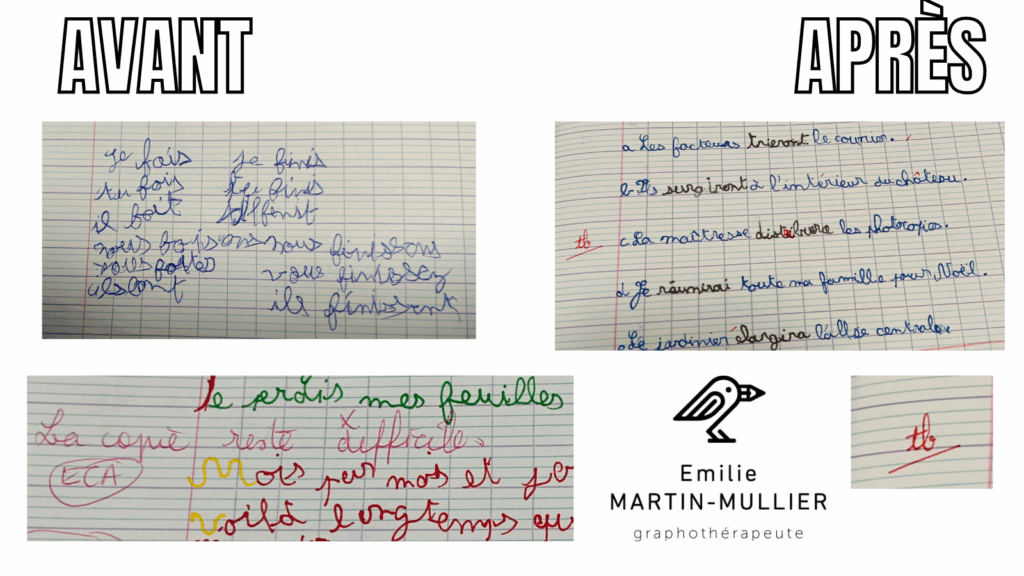 AVANT
APRÈS
Je fais je finis
tu fais tu finis
il fait
nous faisons nous finissons
vous faites vous finissez
ils font
ils finissent
a Les facteurs trieront le courrier.
b. Ils surgiront à l'intérieur du château.
tb
c. La maîtresse distribuera les photocopies.
d. Je réunirai toute ma famille pour Noël.
e Le jardinier élargira l'allée centrale.
Je perdis mes feuilles
La copie reste difficile.
ECA
Mois par mois et
Voilà longtemps qu
Emilie
MARTIN-MULLIER
graphothérapeute
tb